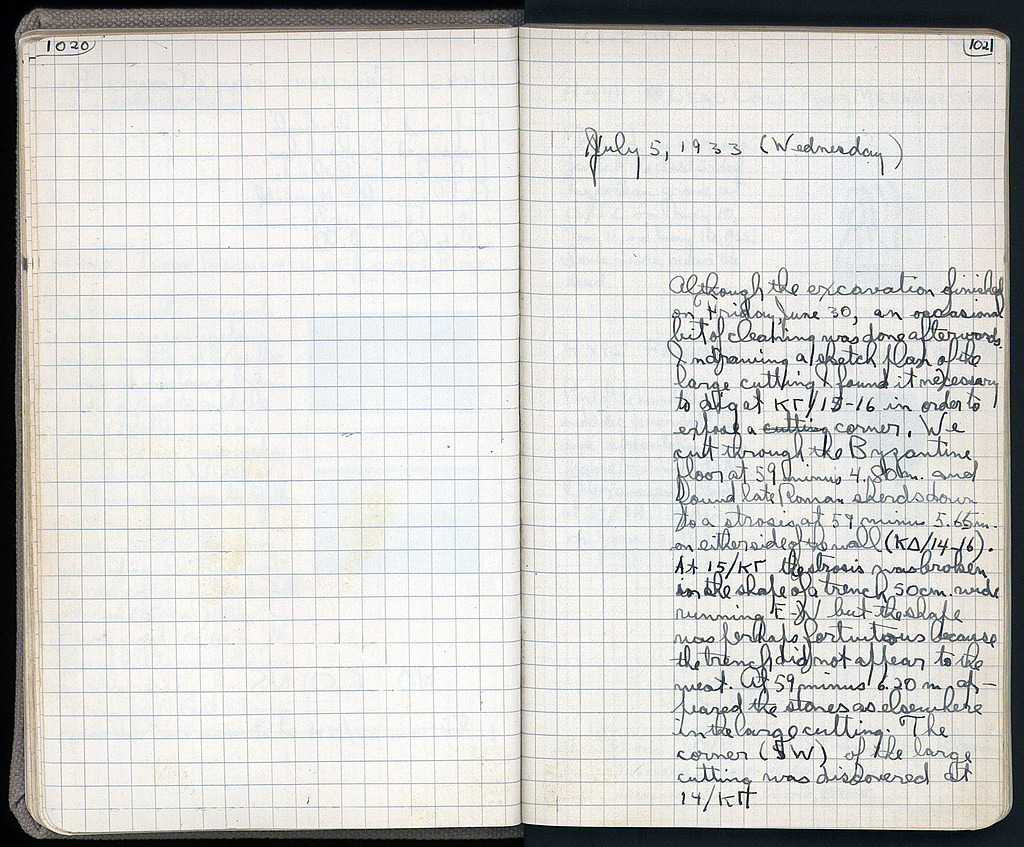 1020
1021
July 5, 1933 (Wednesday)
Although the excavation finished
on Friday, June 30, an occasional
bit of cleaning was done afterwards.
In drawing a sketch plan of the
large cutting I found it necessary
to dig at ΚΓ/15-16 in order to
expose a cutting corner. We
cut through the Byzantine
floor at 59 minus 4.80m. and
found late Roman sherds down
to a strosis at 59 minus 5.65m.
on either side of wall (ΚΔ/14-16).
At 15/ΚΓ the strosis was broken
in the shape of a trench 50cm. wide
running E-W but the shape
was perhaps fortuitous because
the trench did not appear to the
west. At 59 minus 6.20 m ap-
peared the stones as elsewhere
in the large cutting. The
corner (SW) of the large
cutting was discovered at
14/